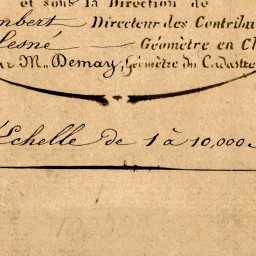 et sous la Direction de
mbert Directeur des Contribu
Lesné — Géomètre en Ch
ar Mr. Demay, Géomètre du Cadastre
Échelle de 1 à 10,000.